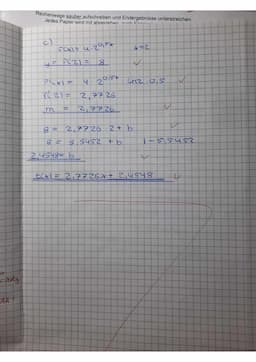 Rechenwege sauber aufschreiben und Endergebnisse unterstreichen.
Jedes Papier wird mit abgegeben
c)
f(x) = 4·2^0,5x x=2
y = f(2) = 8
f'(x) = 4·2^0,5x · ln2·0,5
f'(2) = 2,7726
m = 2,7726
8 = 2,7726·2 + b
8 = 5,5452 + b |-5,5452
2,4548 = b
t(x) = 2,7726x + 2,4548